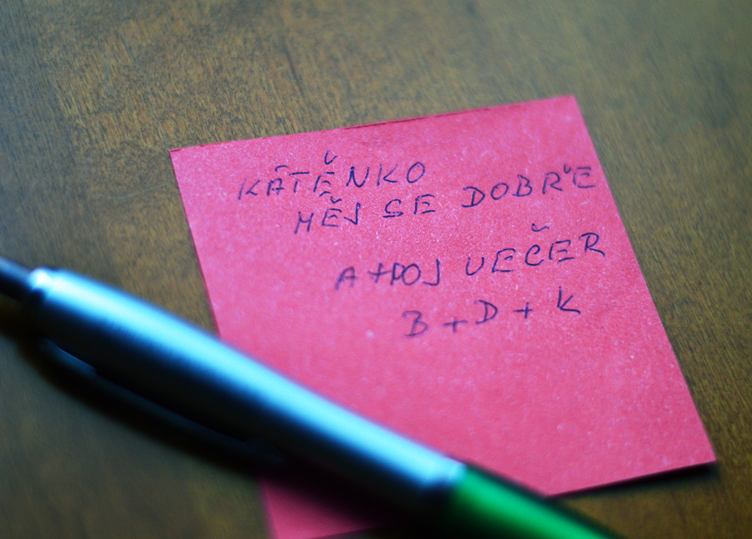 KÁTĚNKO
MĚJ SE DOBŘE
AHOJ VEČER
B + D + K